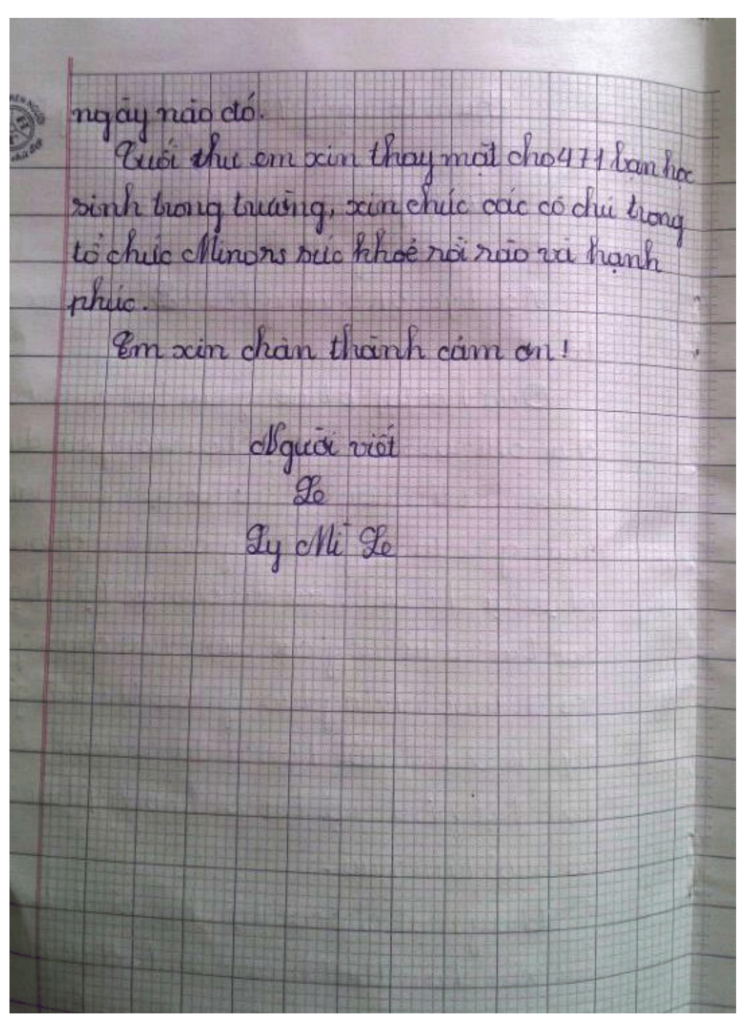 ngày nào đó.
Cuối thư em xin thay mặt cho 471 bạn học
sinh trong trường, xin chúc các cô chú trong
tổ chức Minors sức khoẻ rồi rào và hạnh
phúc.
Em xin chân thành cảm ơn!
Người viết
Le
Ly Mí Le